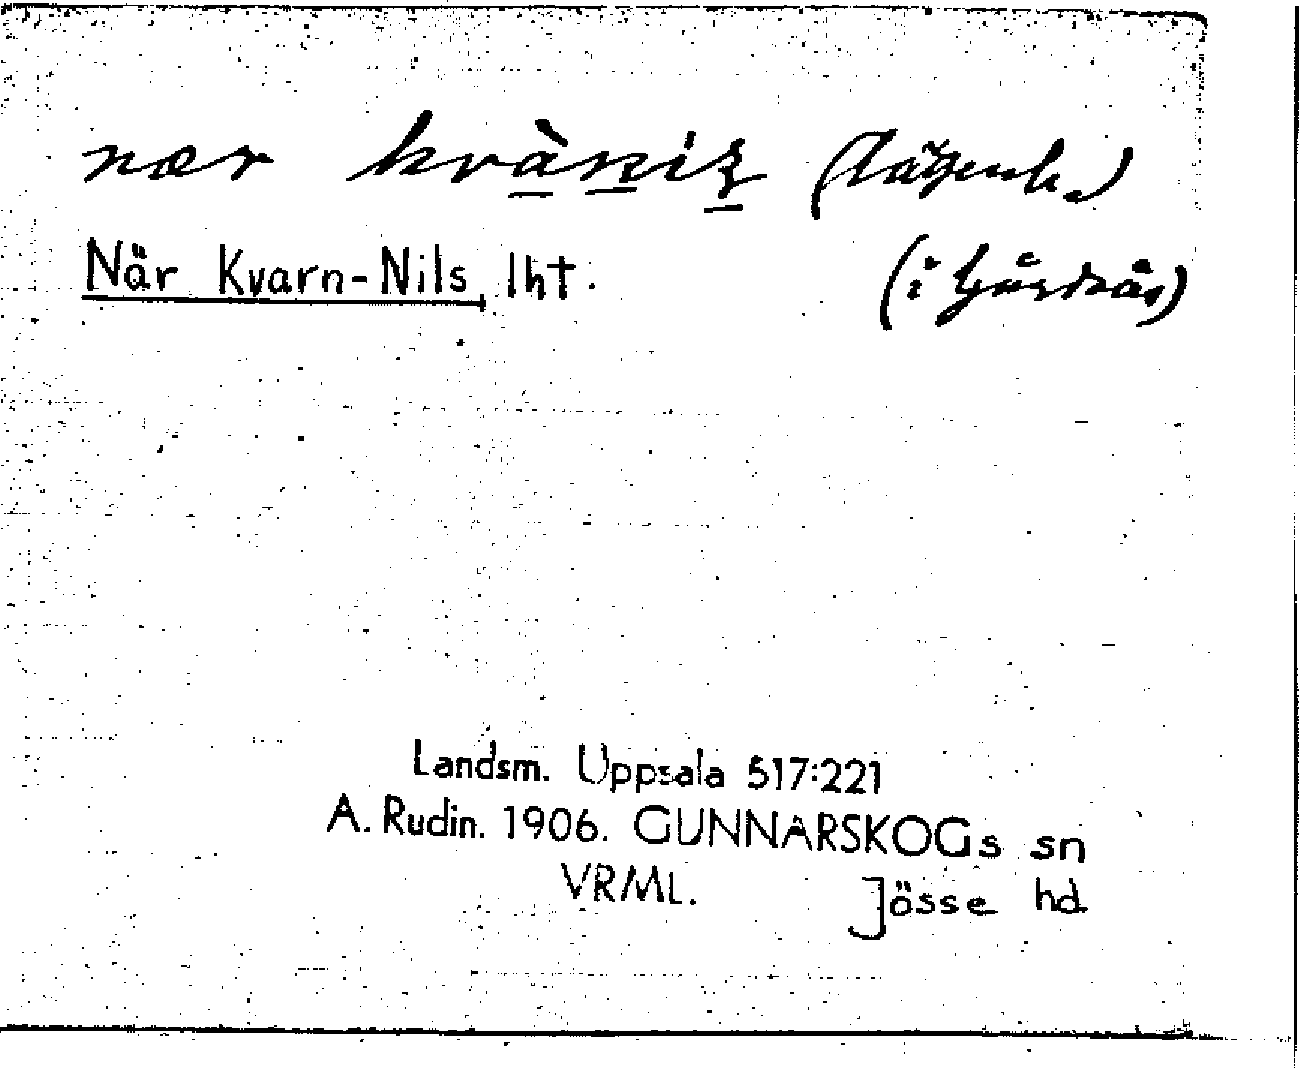 nær kvàniʂ (lägenh.)
När Kvarn-Nils, lht.
(i
Landsm. Uppsala 517:221
A. Rudin. 1906. GUNNARSKOGs sn
VRML. Jösse hd